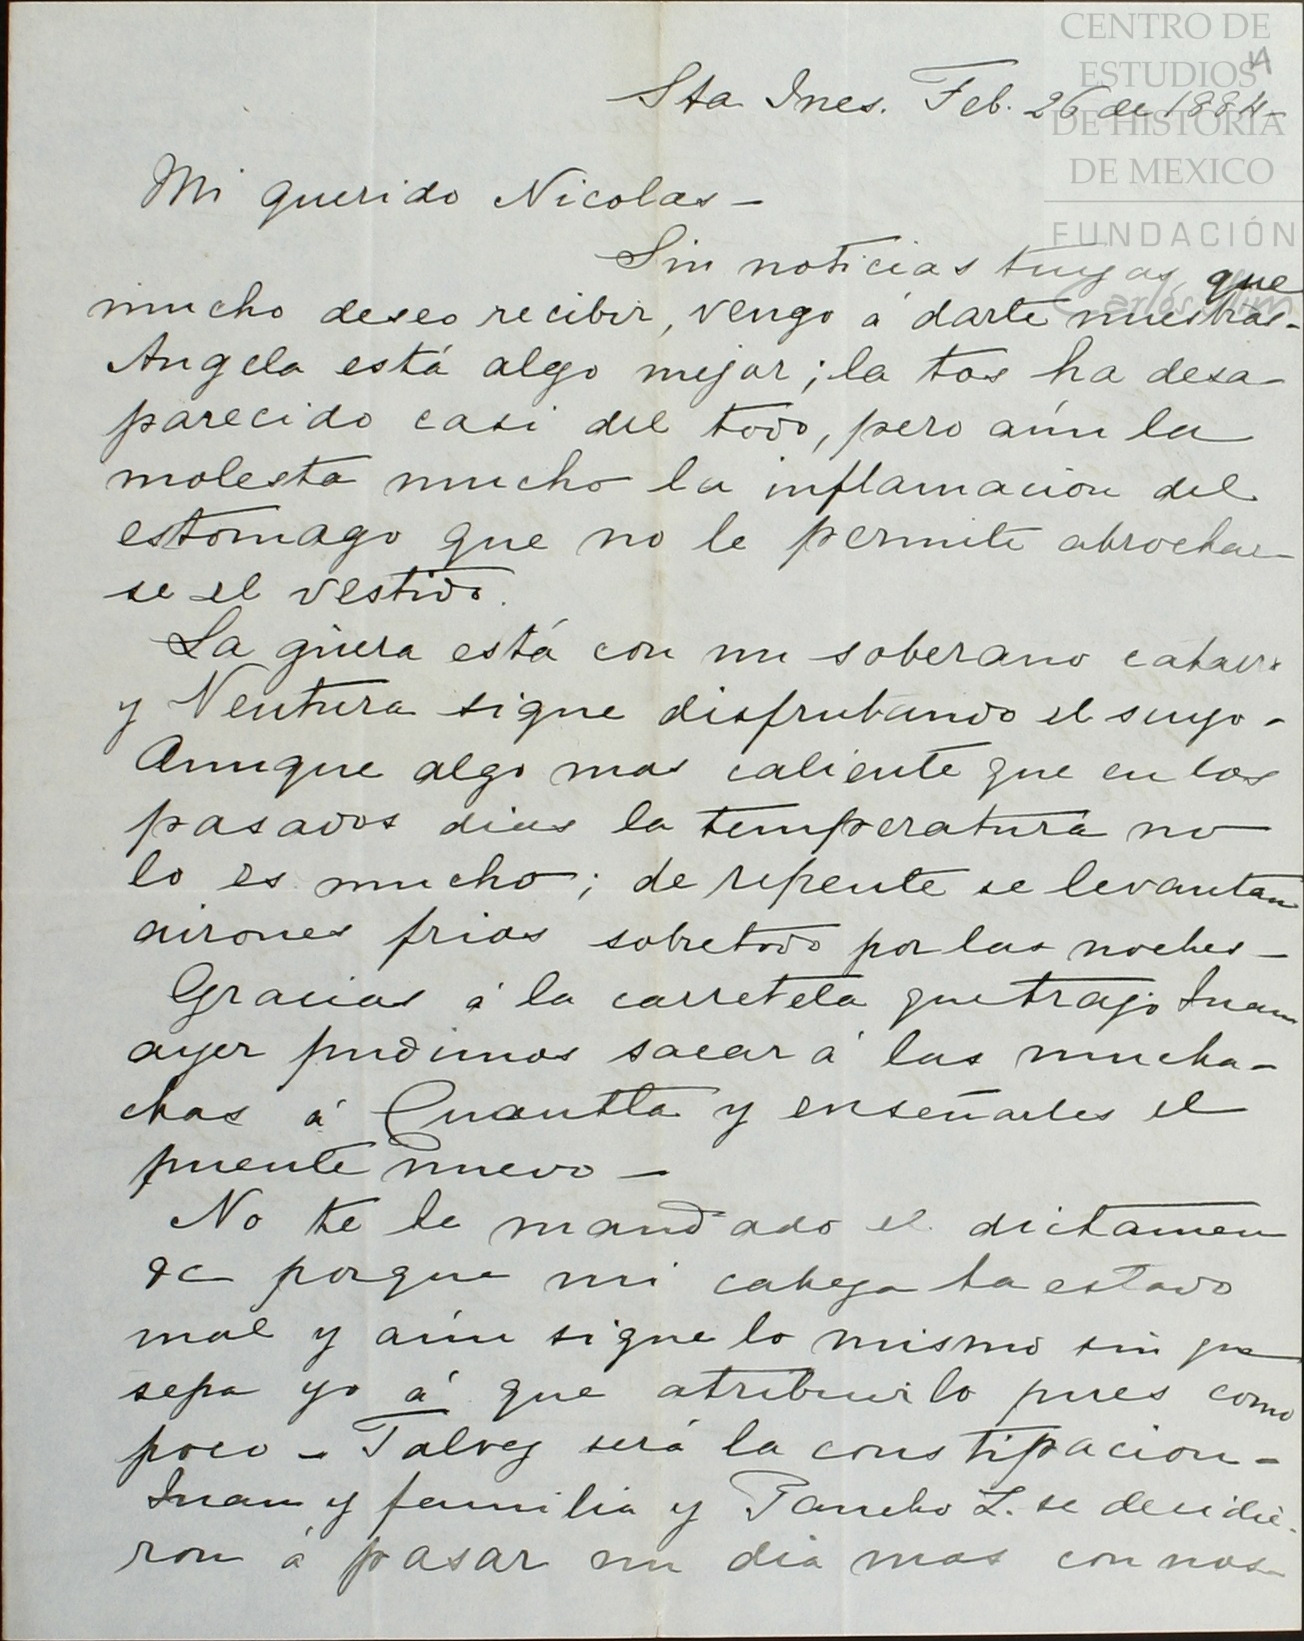 CENTRO DE
ESTUDIOS
DE HISTORIA
DE MEXICO
FUNDACIÓN
Carlos Slim
Sta Ines. Feb. 26 de 1884-
Mi querido Nicolas -
Sin noticias tuyas que
mucho deseo recibir, vengo á darte nuestras.
Angela está algo mejor; la tos ha desa-
parecido casi del todo, pero aún la
molesta mucho la inflamacion del
estomago que no le permite abrochar
se el vestido.
La güera está con un soberano catarro
y Ventura sigue disfrutando el suyo -
Aunque algo mas caliente que en los
pasados dias la temperatura no
lo es mucho; de repente se levantan
airones frios sobretodo por las noches -
Gracias á la carretela que trajo Juan
ayer pudimos sacar á las mucha-
chas á Cuautla y enseñarles el
puente nuevo -
No te he mandado el dictamen
&c porque mi cabeza ha estado
mal y aún sigue lo mismo sin que
sepa yo á que atribuirlo pues como
poco - Talvez será la constipacion -
Juan y familia y Pancho L. se decidie-
ron á pasar un dia mas con nos-